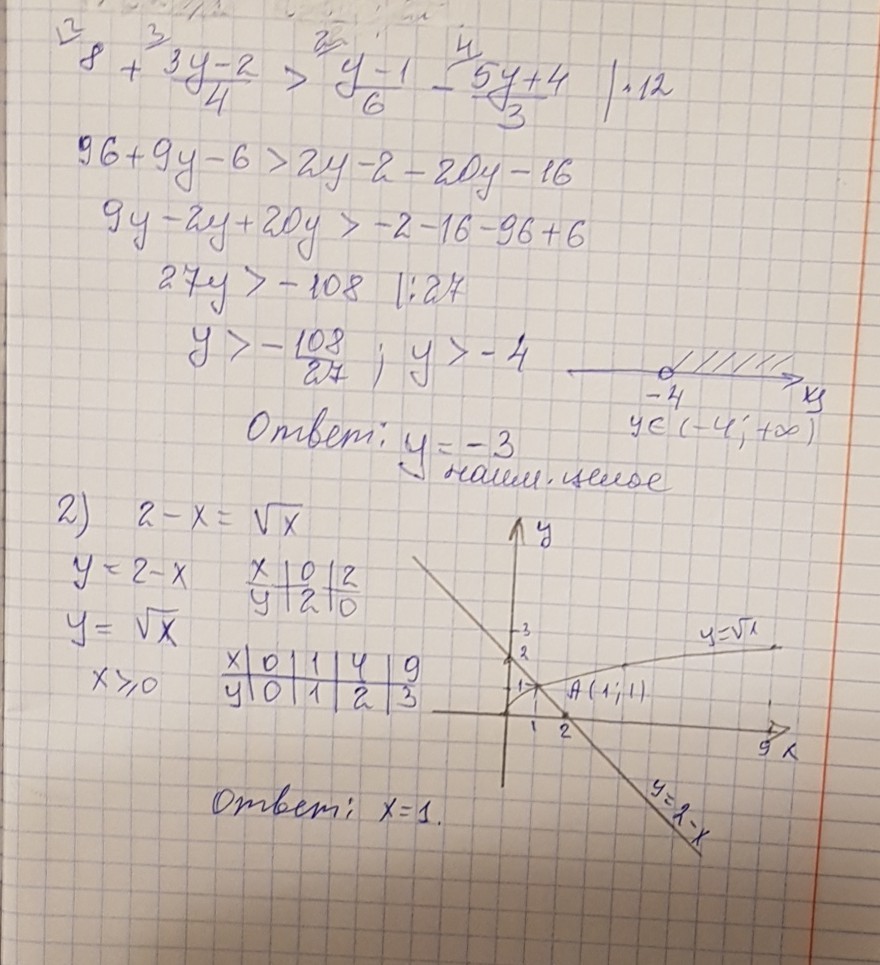 12 3 2 4
8 + (3y-2)/4 > (y-1)/6 - (5y+4)/3 | ·12
96+9y-6>2y-2-20y-16
9y-2y+20y>-2-16-96+6
27y>-108 |:27
y>-108/27; y>-4
-4 y
y∈(-4;+∞)
Ответ: y=-3
наим. целое
2) 2-x=√x
y=2-x
x|0|2
y|2|0
y=√x
x≥0
x|0|1|4|9
y|0|1|2|3
y
3
2
1
y=√x
A(1;1)
1 2 9 x
y=2-x
Ответ: x=1.